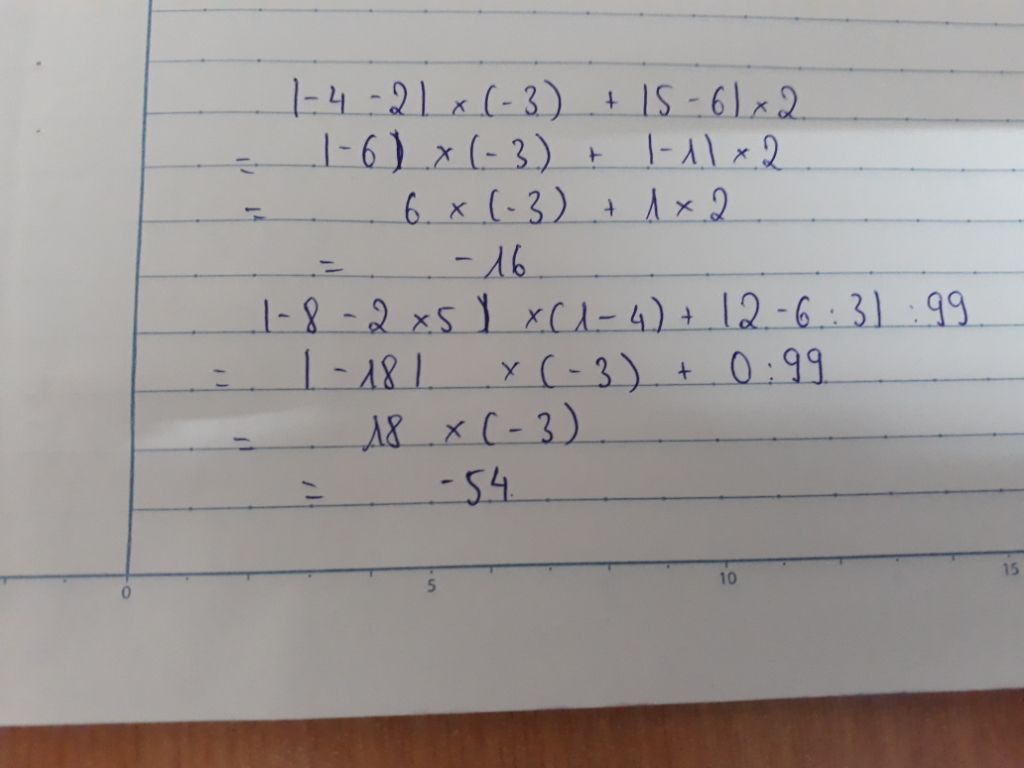 |-4 -2| × (-3) + |5 -6| × 2
= |-6| × (-3) + |-1| × 2
= 6 × (-3) + 1 × 2
= -16
|-8 -2 ×5| ×(1-4) + |2 -6 : 3| : 99
= |-18| × (-3) + 0:99
= 18 × (-3)
= -54
0 5 10 15